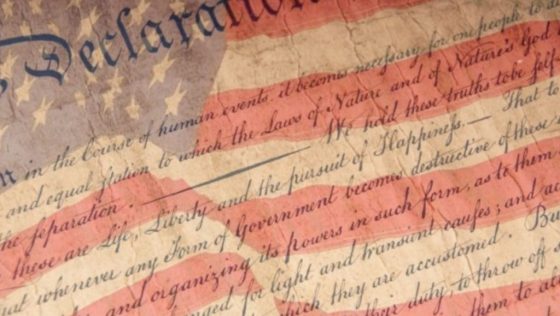 Declaration
n in the Course of human events, it becomes necessary for one people to
and equal station to which the Laws of Nature and of Nature's God
the separation. — We hold these truths to be sel
these are Life, Liberty and the pursuit of Happiness. — That to
that whenever any Form of Government becomes destructive of these
and organizing its powers in such form, as to them
for light and transient causes; and a
which they are accustomed. B
their duty, to throw off
them to a